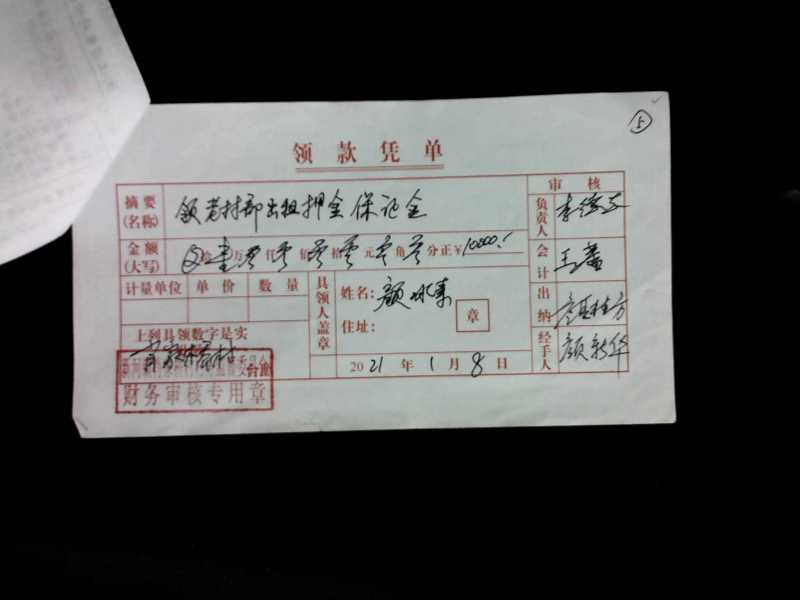 5
领款凭单
摘要(名称) 领老村部出租押金保证金
金额(大写) 拾壹万零仟零佰零拾零元零角零分正￥10000.
计量单位 单价 数量
上列具领数字是实
具领人盖章
姓名：颜冰来
住址：
章
2021年1月8日
审核
负责人 李
会计 王
出纳
经手人 颜新华
财务审核专用章